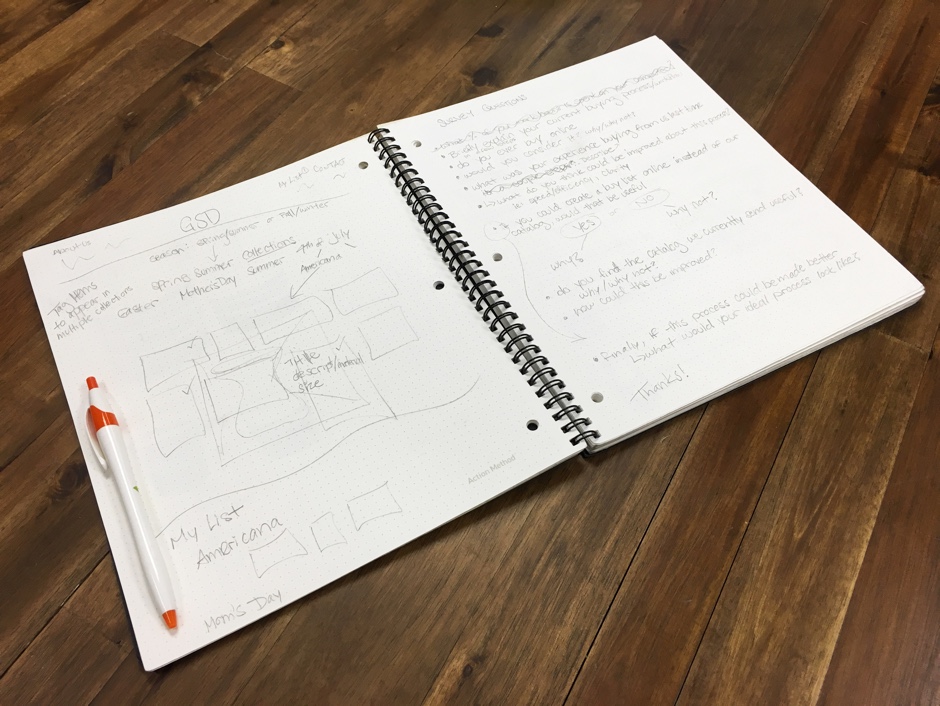 My List Contact
GSD
About Us
season: spring/summer or fall/winter
Tag Items
to appear in
multiple collections
collections
Spring Summer Summer 4th of July
Easter Mother's Day Americana
Title
descript/material
size
My List
Americana
Mom's Day
Action Method
Survey Questions
your current buying process/
• do you ever buy online
• would you consider it why/why not
• what was your experience buying from us last time
describe
what do you think could be improved about this process
ie speed/efficiency, clarity
• If you could create a buy list online instead of our
catalog would that be useful
Yes or No
why? why not?
• do you find the catalog we currently send useful?
why/why not?
• how could this be improved?
• Finally, if this process could be made better
what would your ideal process look like?
Thanks!